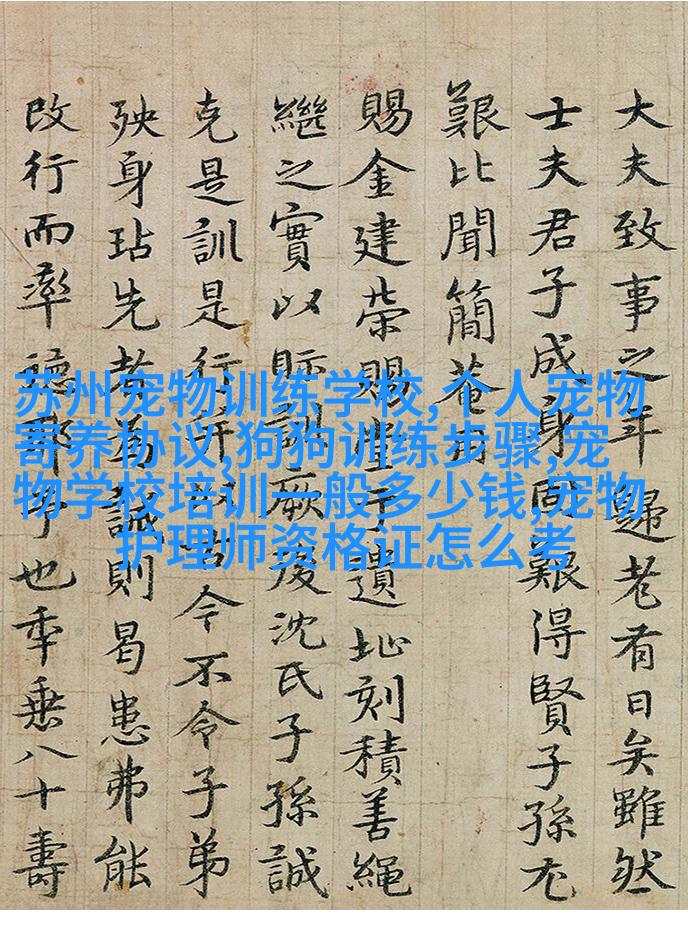 大夫致事之年歸老有日矣雖然
士夫君子成身固艱得賢子孫尤
艱比聞簡菴用
賜金建榮賜堂于遺址刻積善繩
繼之實以訓厥後沈氏子孫誠
克是訓是行令不令子弟
殃身玷先者為誡則曷患弗能
改行而率德耶予也年垂八十壽
苏州宠物训练学校,个人宠物
寄养协议,狗狗训练步骤,宠
物学校培训一般多少钱,宠物
护理师资格证怎么考